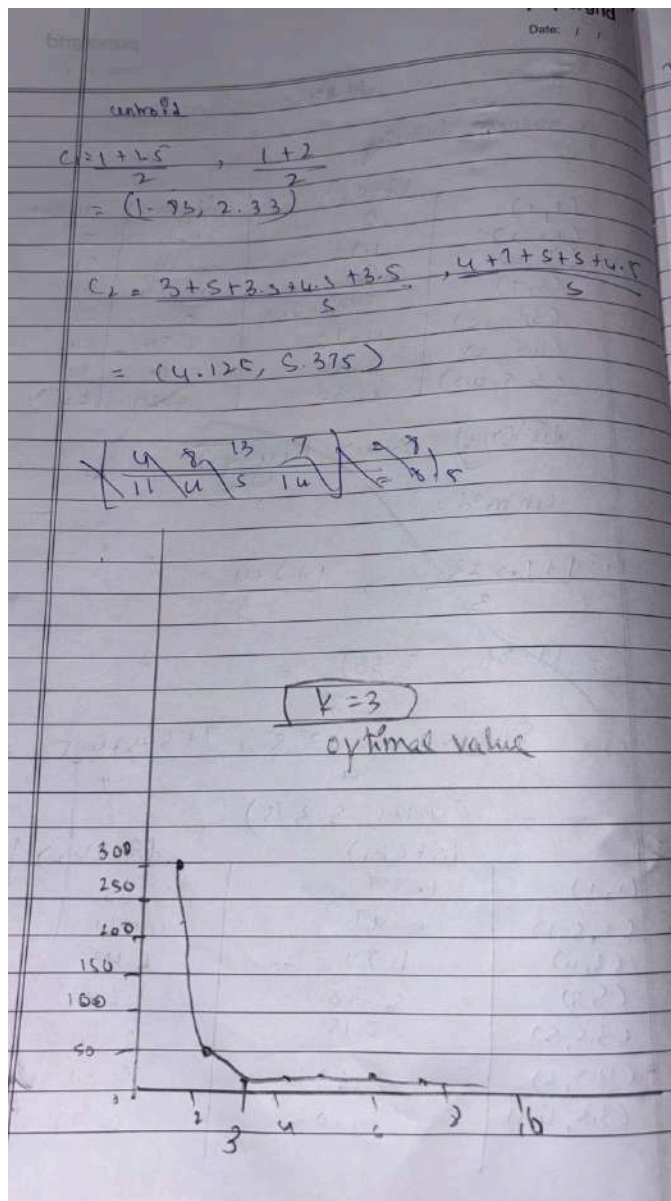 Date: / /
centroid
C1 = 1+1.5 / 2 , 1+2 / 2
= (1.83, 2.33)
C2 = 3+5+3.5+4.5+3.5 / 5 , 4+7+5+5+4.5 / 5
= (4.125, 5.375)
4 8 13 7
11 4 5 14
k = 3
optimal value
300
250
200
150
100
50
2 3 4 6 8 10